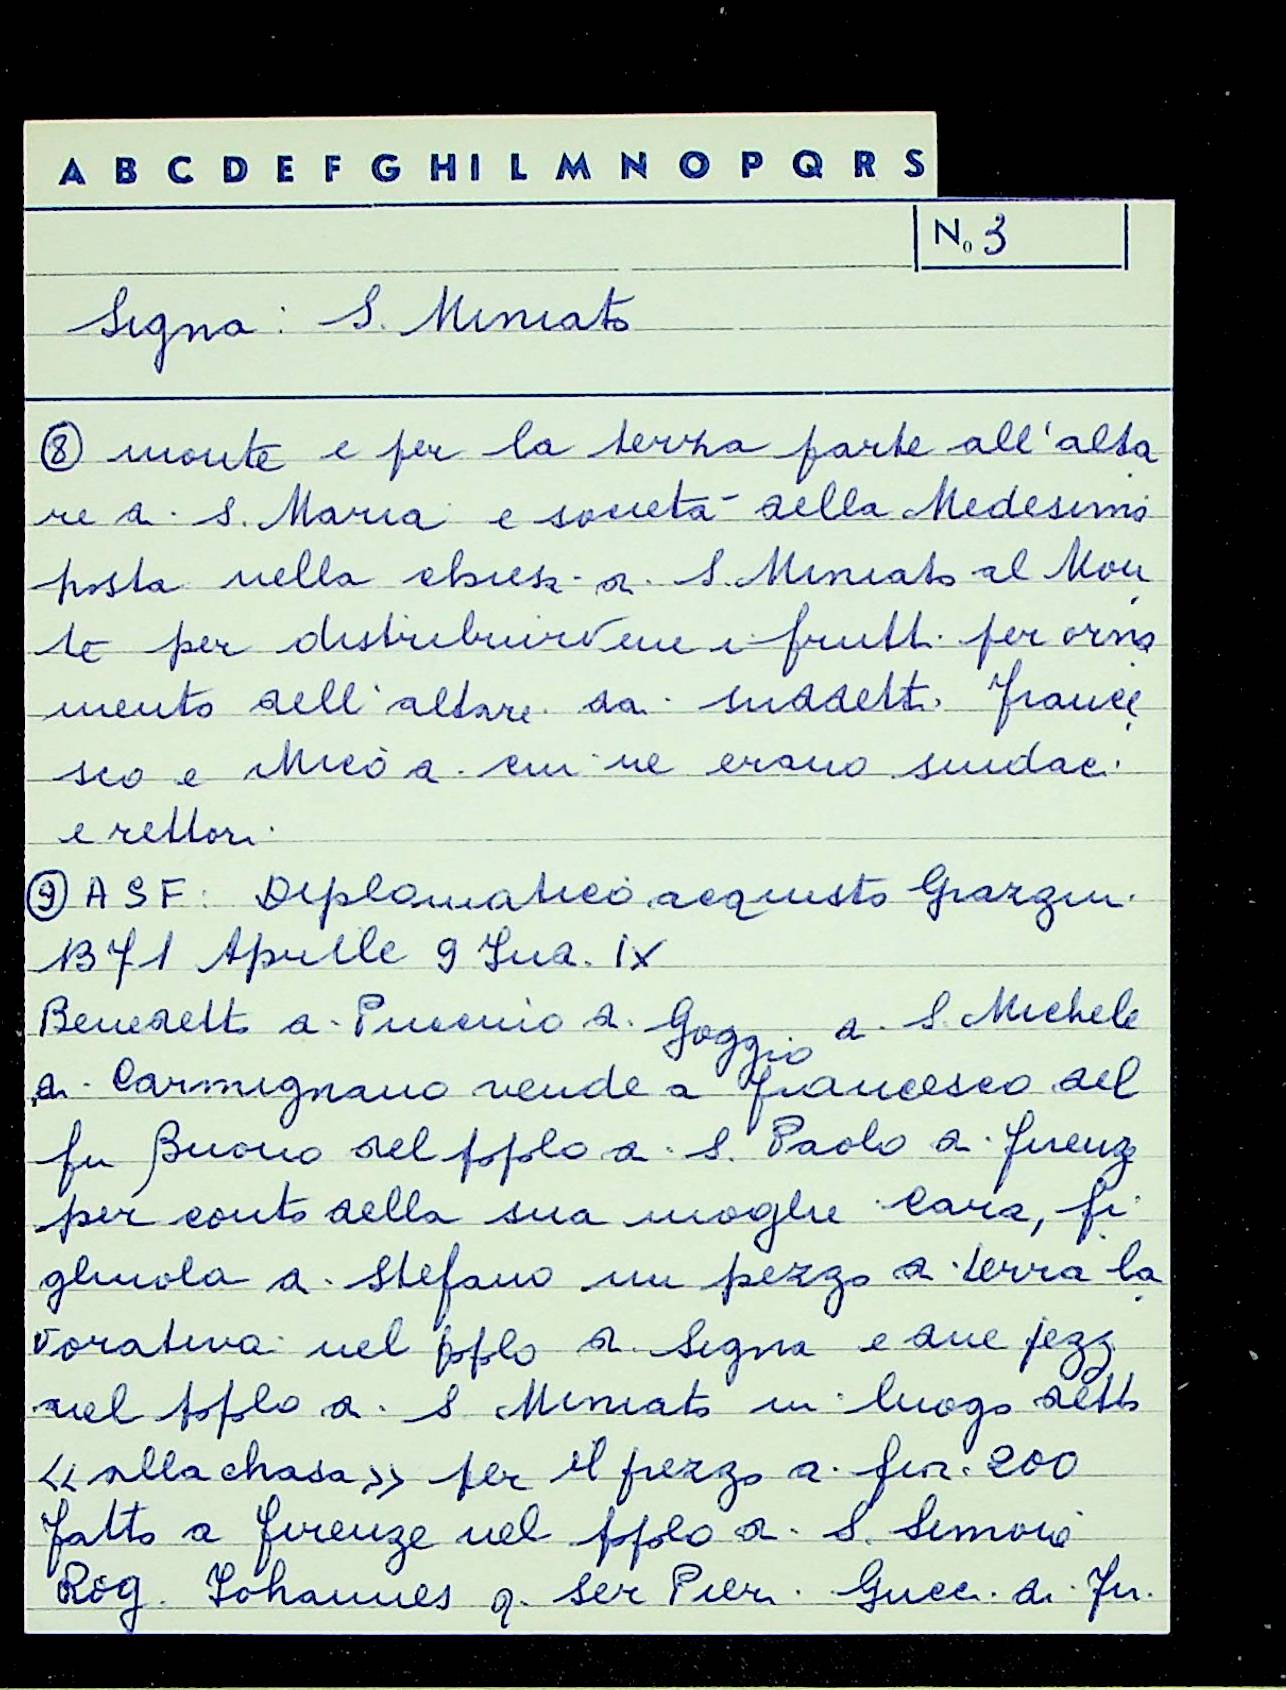 A B C D E F G H I L M N O P Q R S
No 3
Signa: S. Miniato
⑧ monte e per la terza parte all'alta
re di S. Maria e società della Medesima
posta nella chiesa di S. Miniato al Mon
te per distribuirvene i frutti per orna
mento dell'altare dai suddetti France
sco e Micò di cui ne erano sindaci
e rettori.
⑨ ASF: Diplomatico acquisto Grazzini
1371 Aprile 9 Ind. IX
Benedetto di Puccino di Goggio di S. Michele
di Carmignano vende a Francesco del
fu Buono del pplo di S. Paolo di Firenze
per conto della sua moglie Cara, fi
gliuola di Stefano un pezzo di terra la
vorativa nel pplo di Signa e due pezzi
nel pplo di S. Miniato in luogo detto
«alla chasa» per il prezzo di fior. 200
fatto a Firenze nel pplo di S. Simone
Rog. Johannes q. ser Pieri Gucci di Fir.